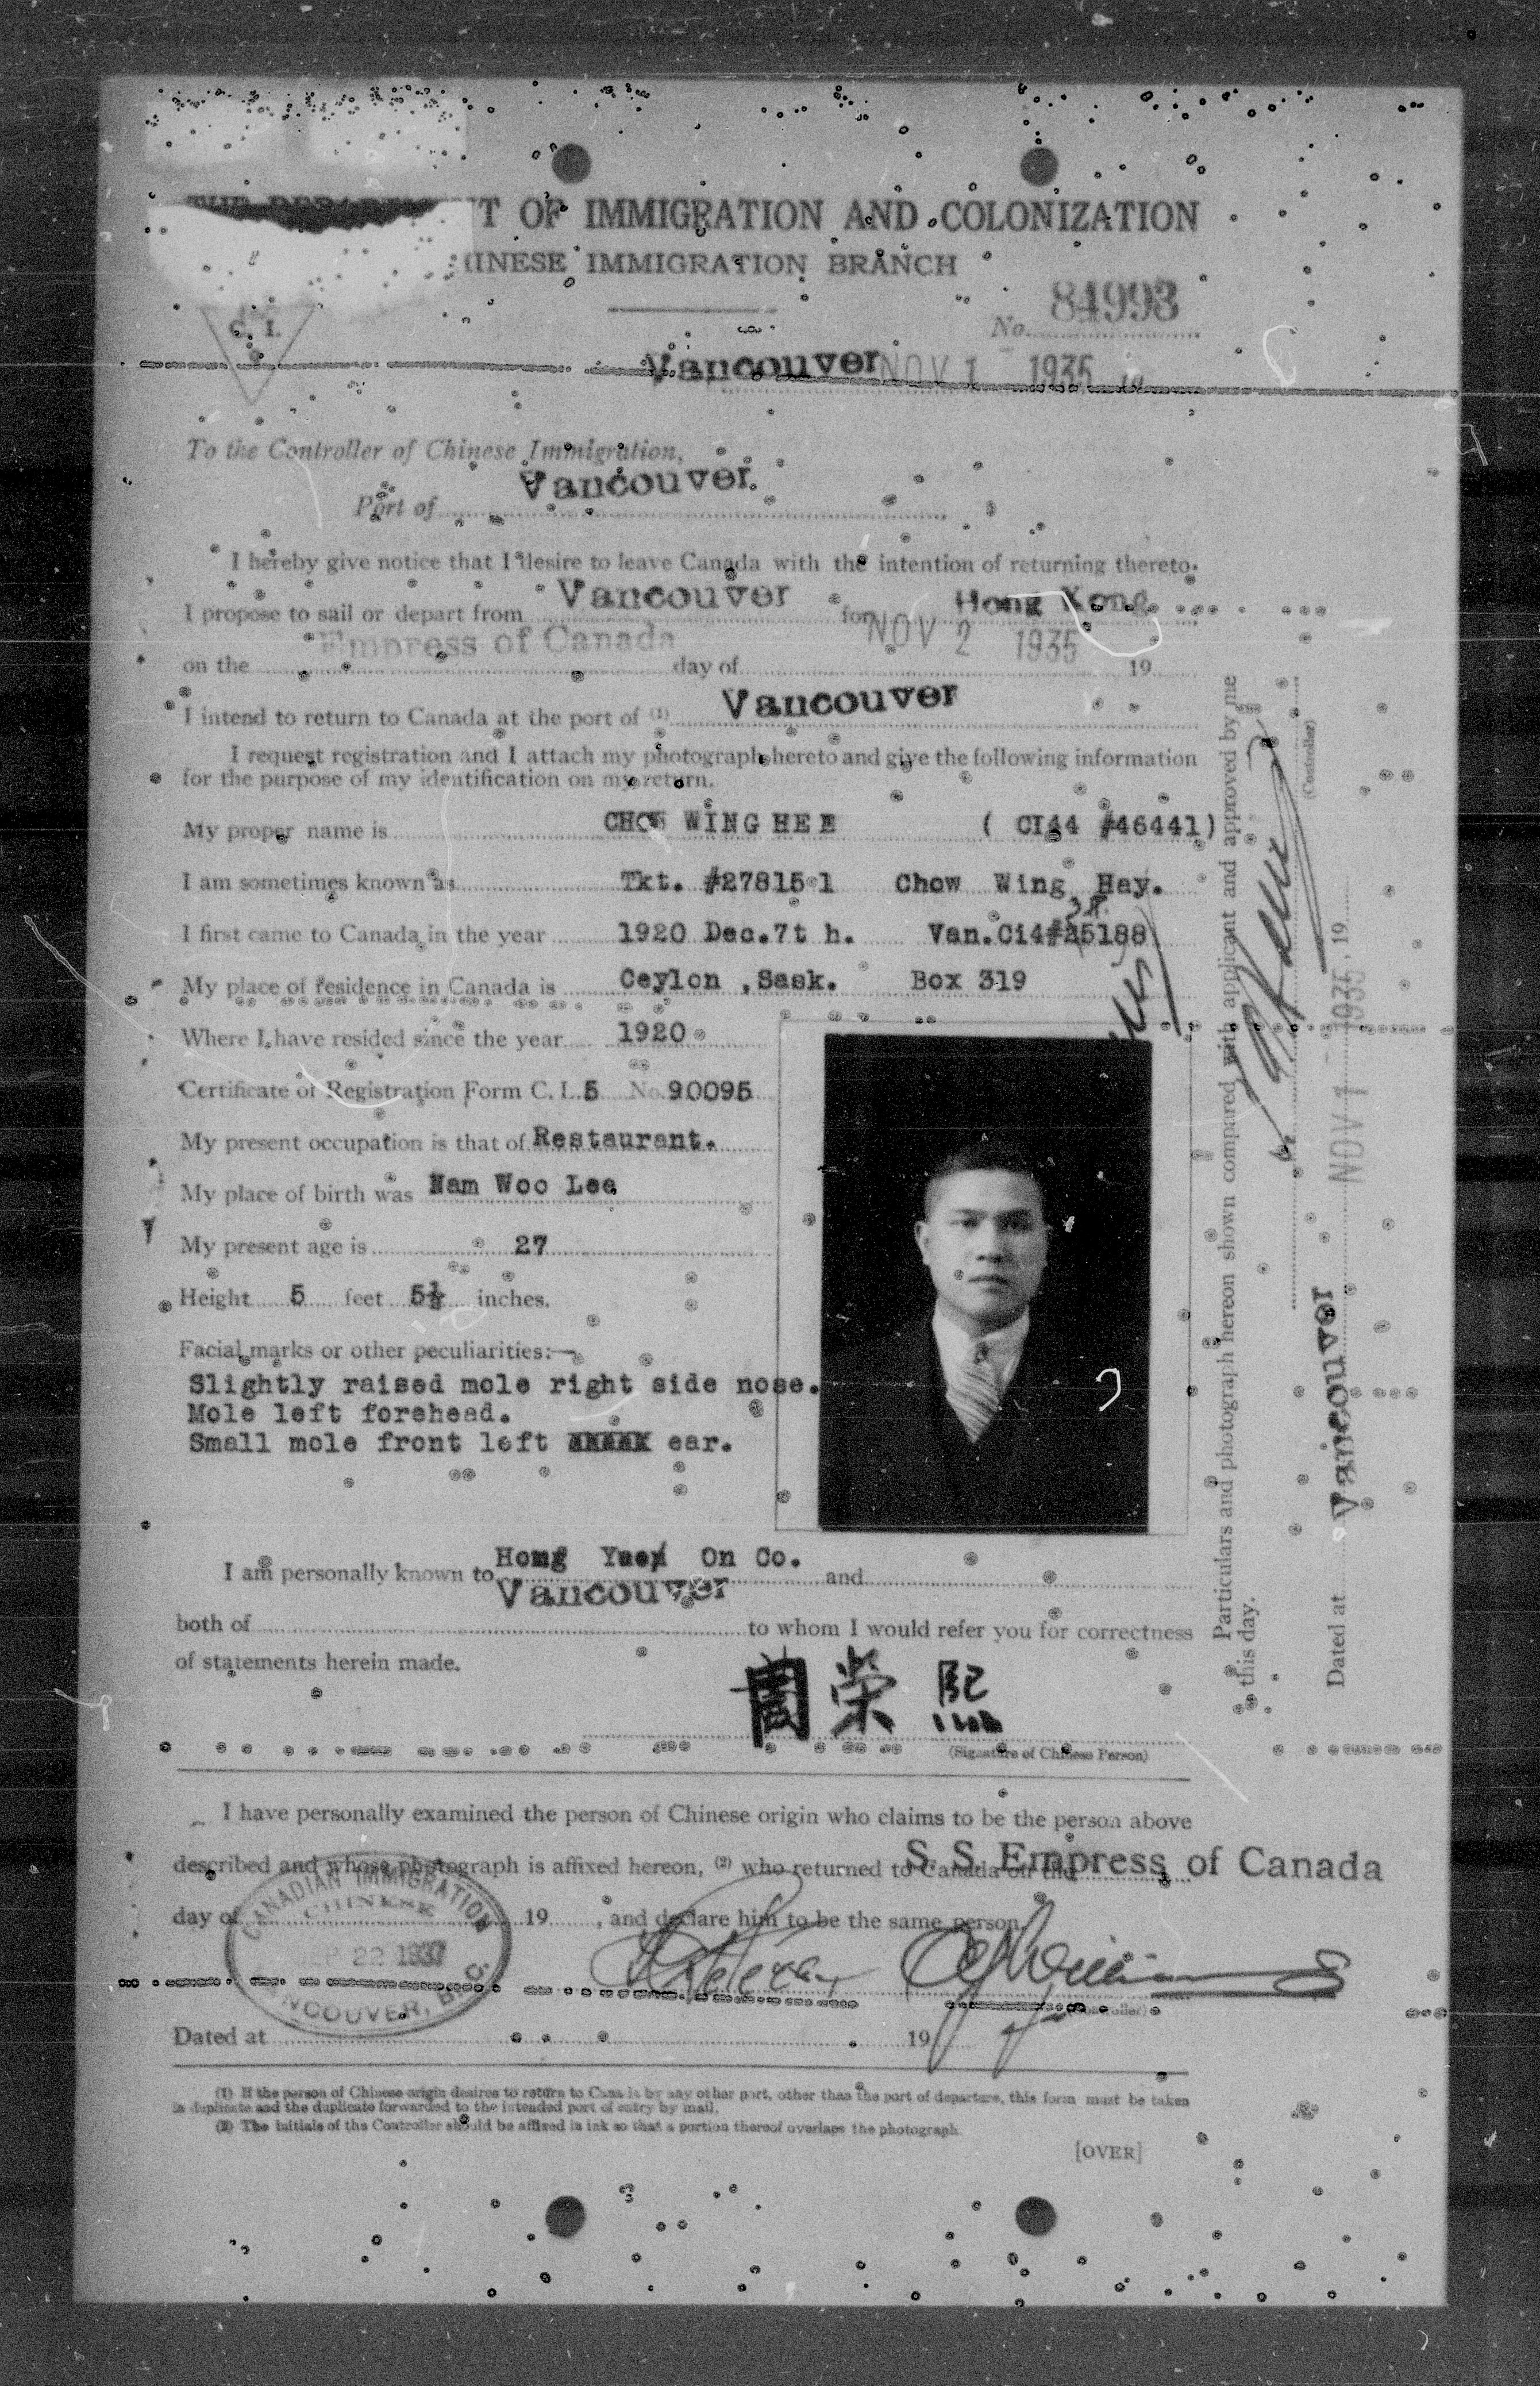 T OF IMMIGRATION AND COLONIZATION
INESE IMMIGRATION BRANCH
No. 84993
C. I.
9
Vancouver NOV 1 1935 19
To the Controller of Chinese Immigration,
Port of Vancouver.
I hereby give notice that I desire to leave Canada with the intention of returning thereto.
I propose to sail or depart from Vancouver for Hong Kong
on the Empress of Canada day of NOV 2 1935 19
I intend to return to Canada at the port of (1) Vancouver
I request registration and I attach my photograph hereto and give the following information
for the purpose of my identification on my return.
My proper name is CHOW WING HEE ( CI44 #46441)
I am sometimes known as Tkt. #27815-1 Chow Wing Hay.
I first came to Canada in the year 1920 Dec.7t h. Van.Ci4#25188
My place of residence in Canada is Ceylon ,Sask. Box 319
Where I have resided since the year 1920
Certificate of Registration Form C. I. 5 No. 90095
My present occupation is that of Restaurant.
My place of birth was Nam Woo Lee
My present age is 27
Height 5 feet 5½ inches.
Facial marks or other peculiarities:—
Slightly raised mole right side nose.
Mole left forehead.
Small mole front left ear.
I am personally known to Hong Yuen On Co. and
Vancouver
both of to whom I would refer you for correctness
of statements herein made.
周榮熙
(Signature of Chinese Person)
I have personally examined the person of Chinese origin who claims to be the person above
described and whose photograph is affixed hereon, (2) who returned to Canada on the S. S. Empress of Canada
day of 19 , and declare him to be the same person.
CANADIAN IMMIGRATION
CHINESE
22 1937
VANCOUVER, B. C.
Dated at 19
(1) If the person of Chinese origin desires to return to Canada by any other port, other than the port of departure, this form must be taken
in duplicate and the duplicate forwarded to the intended port of entry by mail.
(2) The initials of the Controller should be affixed in ink so that a portion thereof overlaps the photograph.
[OVER]
Particulars and photograph hereon shown compared with applicant and approved by me
this day.
(Controller)
Dated at Vancouver NOV 1 - 1935 , 19